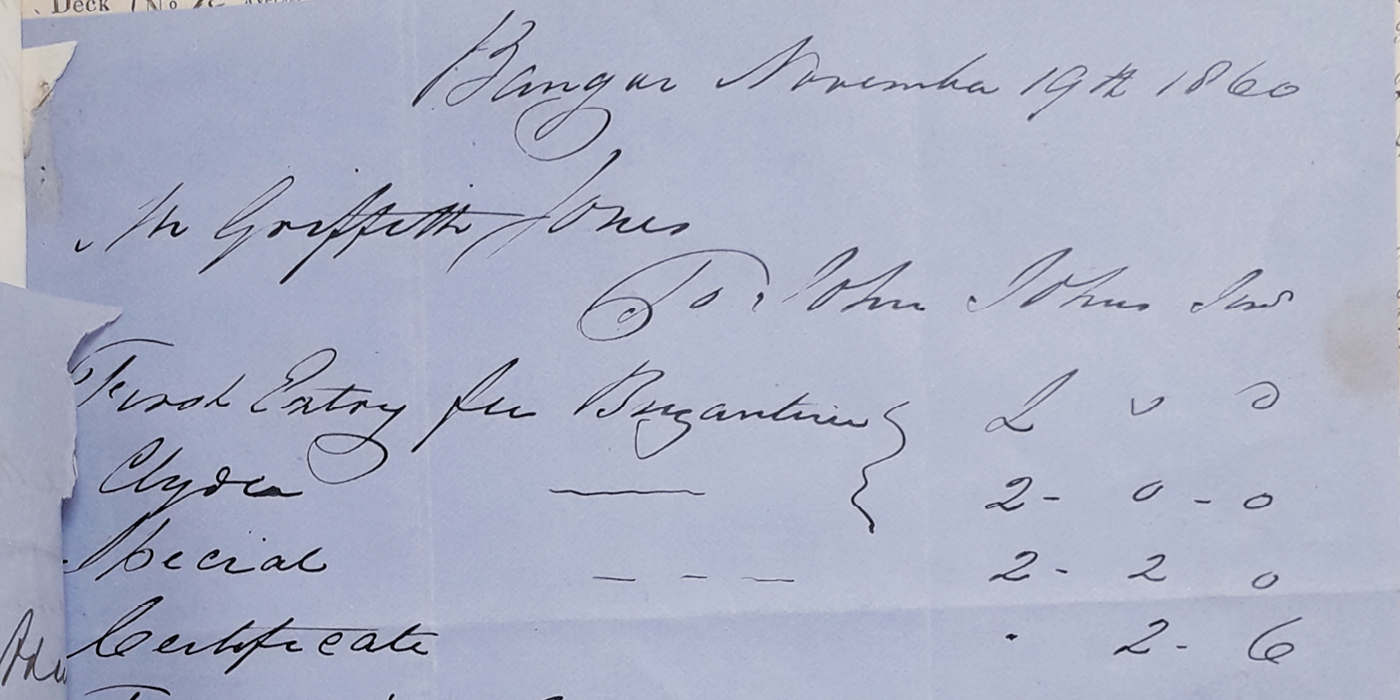 Deck No
Bangor November 19th 1860
Mr Griffith Jones
To John Johns Junr
First Entry fee Byzantine } 2 0 0
Clydea — 2 - 0 - 0
Special — — — 2 - 2 0
Certificate " 2 - 6